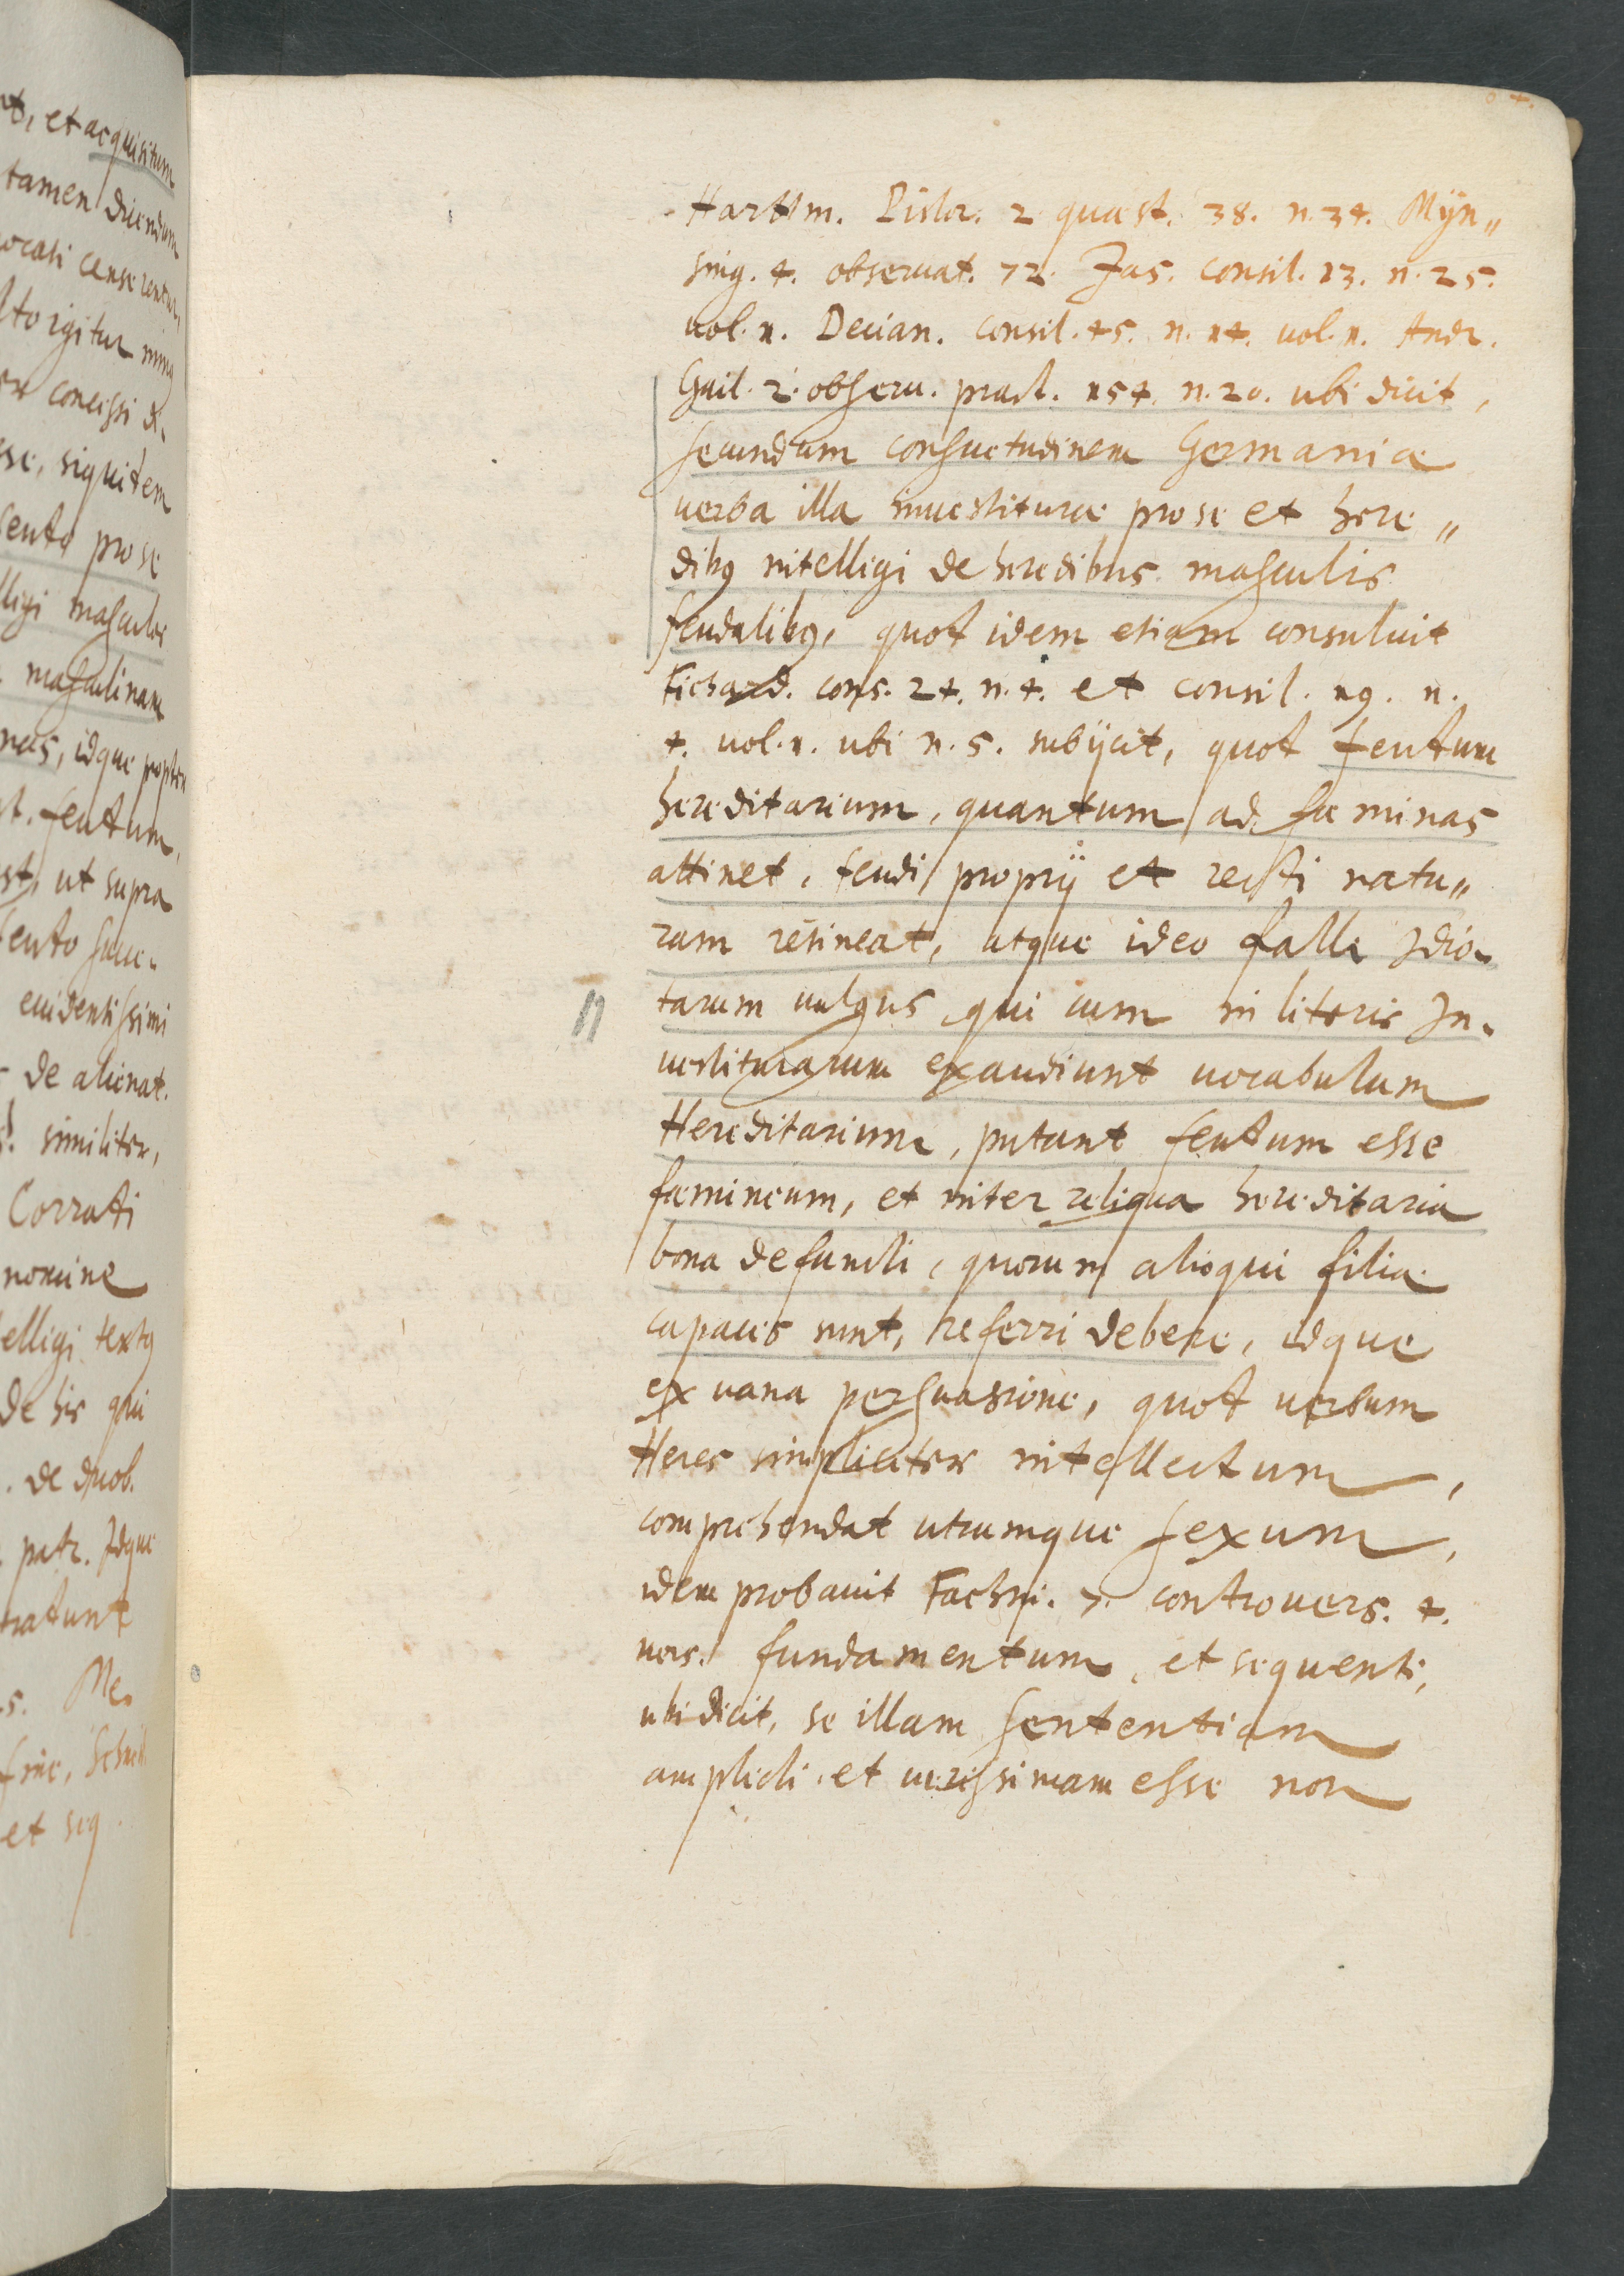 t, et acquisitum
tamen dicendum
vocati censerentur,
lto igitur
concessi
sse, siquidem
feuto pro se
lligi masculos
masculinam
nas, idque propter
t. feutum,
st, ut supra
feuto
euidentissimi
de alienat.
similiter,
Corrati
nomine
elligi textus
de his qui
. de duob.
. patr. Idque
s. Me-
et seq.
Hartm. Pistor. 2 quæst. 38. n. 34. Mÿn„
sing. 4. obseruat. 72. Jas. consil. 13. n. 25.
uol. 1. Decian. consil. 45. n. 14. uol. 1. Andr.
Gail. 2. obseru. pract. 154. n. 20. ubi dicit,
secundum consuetudinem Germaniæ
uerba illa inuestituræ pro se et here„
dibus intelligi de heredibus masculis
feudalibus, quot idem etiam consuluit
Fichard. cons. 24. n. 4. et consil. 19. n.
4. uol. 1. ubi n. 5. subijcit, quot feutum
hereditarium, quantum ad fæminas
attinet, feudi proprij et recti natu„
ram retineat, atque ideo falli Idio-
tarum uulgus, qui cum in literis In-
uestiturarum exaudiunt uocabulum
Hereditarium, putant feutum esse
fæmineum, et inter reliqua hereditaria
bona defuncti, quorum alioqui filiæ
capaces sunt, referri debere, idque
ex uana persuasione, quot uerbum
Heres simpliciter intellectum,
comprehendat utrumque sexum,
idem probauit Fachin. 7. controuers. 4.
uers. fundamentum, et sequenti,
ubi dicit, se illam sententiam
amplecti, et uerissimam esse non